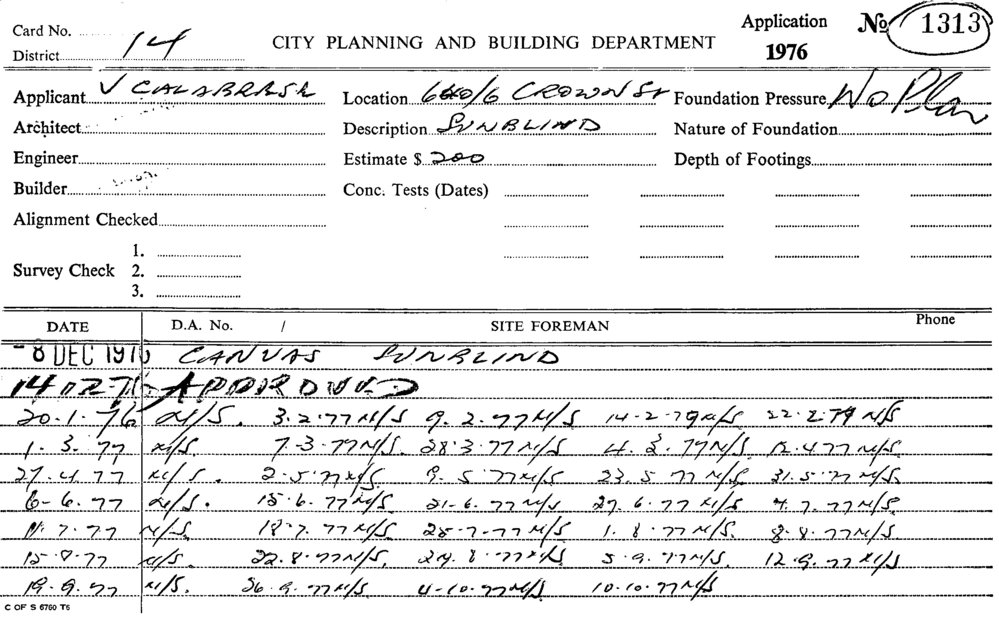 Card No.
District 14
CITY PLANNING AND BUILDING DEPARTMENT
Application No 1313
1976
Applicant V CALABRESE Location 640/6 CROWN ST Foundation Pressure No Plan
Architect Description SUNBLIND Nature of Foundation
Engineer Estimate $ 200 Depth of Footings
Builder Conc. Tests (Dates)
Alignment Checked
Survey Check 1. 2. 3.
DATE D.A. No. / SITE FOREMAN Phone
-8 DEC 1976 CANVAS SUNBLIND
14 12 76 APPROVED
20.1.76 N/S. 3.2.77 N/S 9.2.77 N/S 14-2-79 N/S 22.2.79 N/S
1.3.77 N/S. 7-3.77 N/S. 28.3.77 N/S 4.2.77 N/S 12.4.77 N/S.
27.4.77 N/S. 2-5.77 N/S. 9.5.77 N/S 23.5.77 N/S 31.5.77 N/S.
6-6.77 N/S. 15.6.77 N/S. 21-6.77 N/S 27.6.77 N/S 4.7.77 N/S
11.7.77 N/S. 18.7.77 N/S 25-7-77 N/S 1.8.77 N/S 8.8.77 N/S
15.8.77 N/S. 22.8.77 N/S. 29.8.77 N/S 5.9.77 N/S. 12.9.77 N/S
19.9.77 N/S. 26.9.77 N/S 4-10.77 N/S 10-10.77 N/S
C OF S 6760 T6